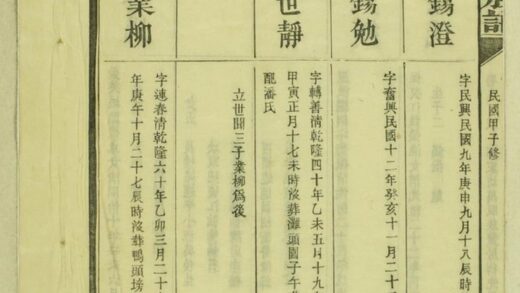 民國甲子修
錫澄
字民興民國九年庚申九月十八辰時
錫勉
字奮興民國十二年癸亥十一月二十
世靜
字轉善清乾隆四十年乙未五月十九
甲寅正月十七未時沒葬灘頭園子午
配潘氏
立世關三子業柳為後
業柳
字連春清乾隆六十年乙卯三月二十
年庚午十月二十七辰時沒葬鴨頭塝